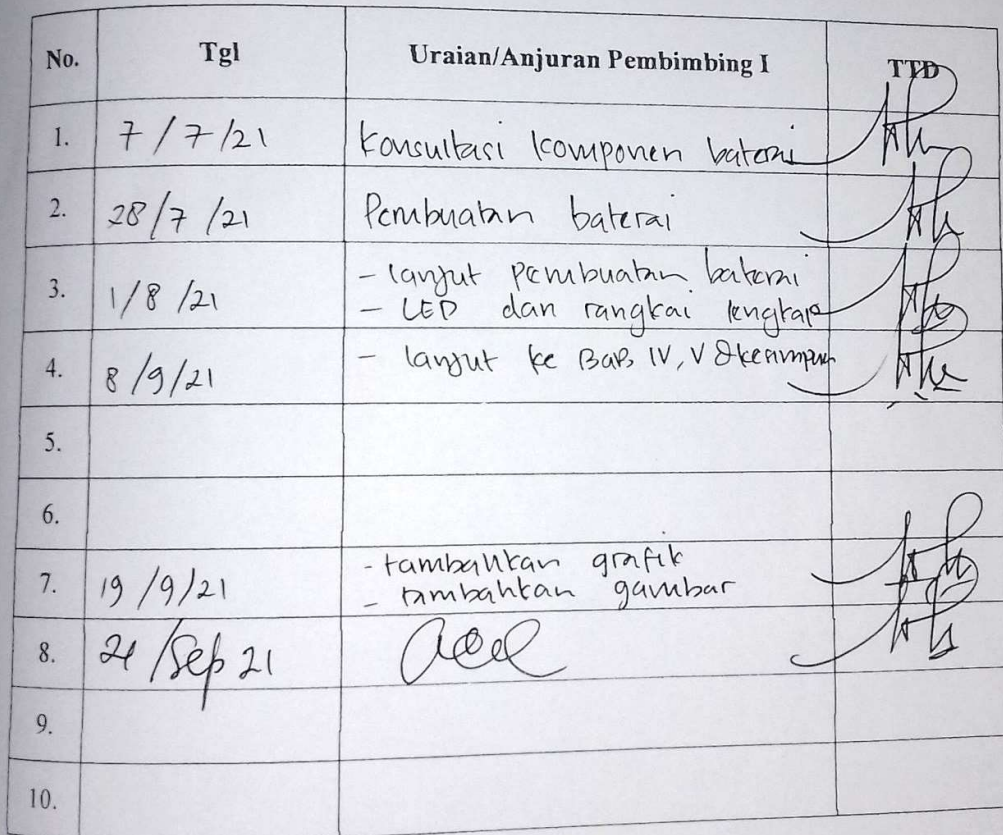 No. Tgl Uraian/Anjuran Pembimbing I TTD
1. 7/7/21 Konsultasi komponen baterai
2. 28/7/21 Pembuatan baterai
3. 1/8/21 - lanjut pembuatan baterai
- LED dan rangkai lengkap
4. 8/9/21 - lanjut ke Bab IV, V &
5.
6.
7. 19/9/21 - tambahkan grafik
- tambahkan gambar
8. /Sep 21 acc
9.
10.